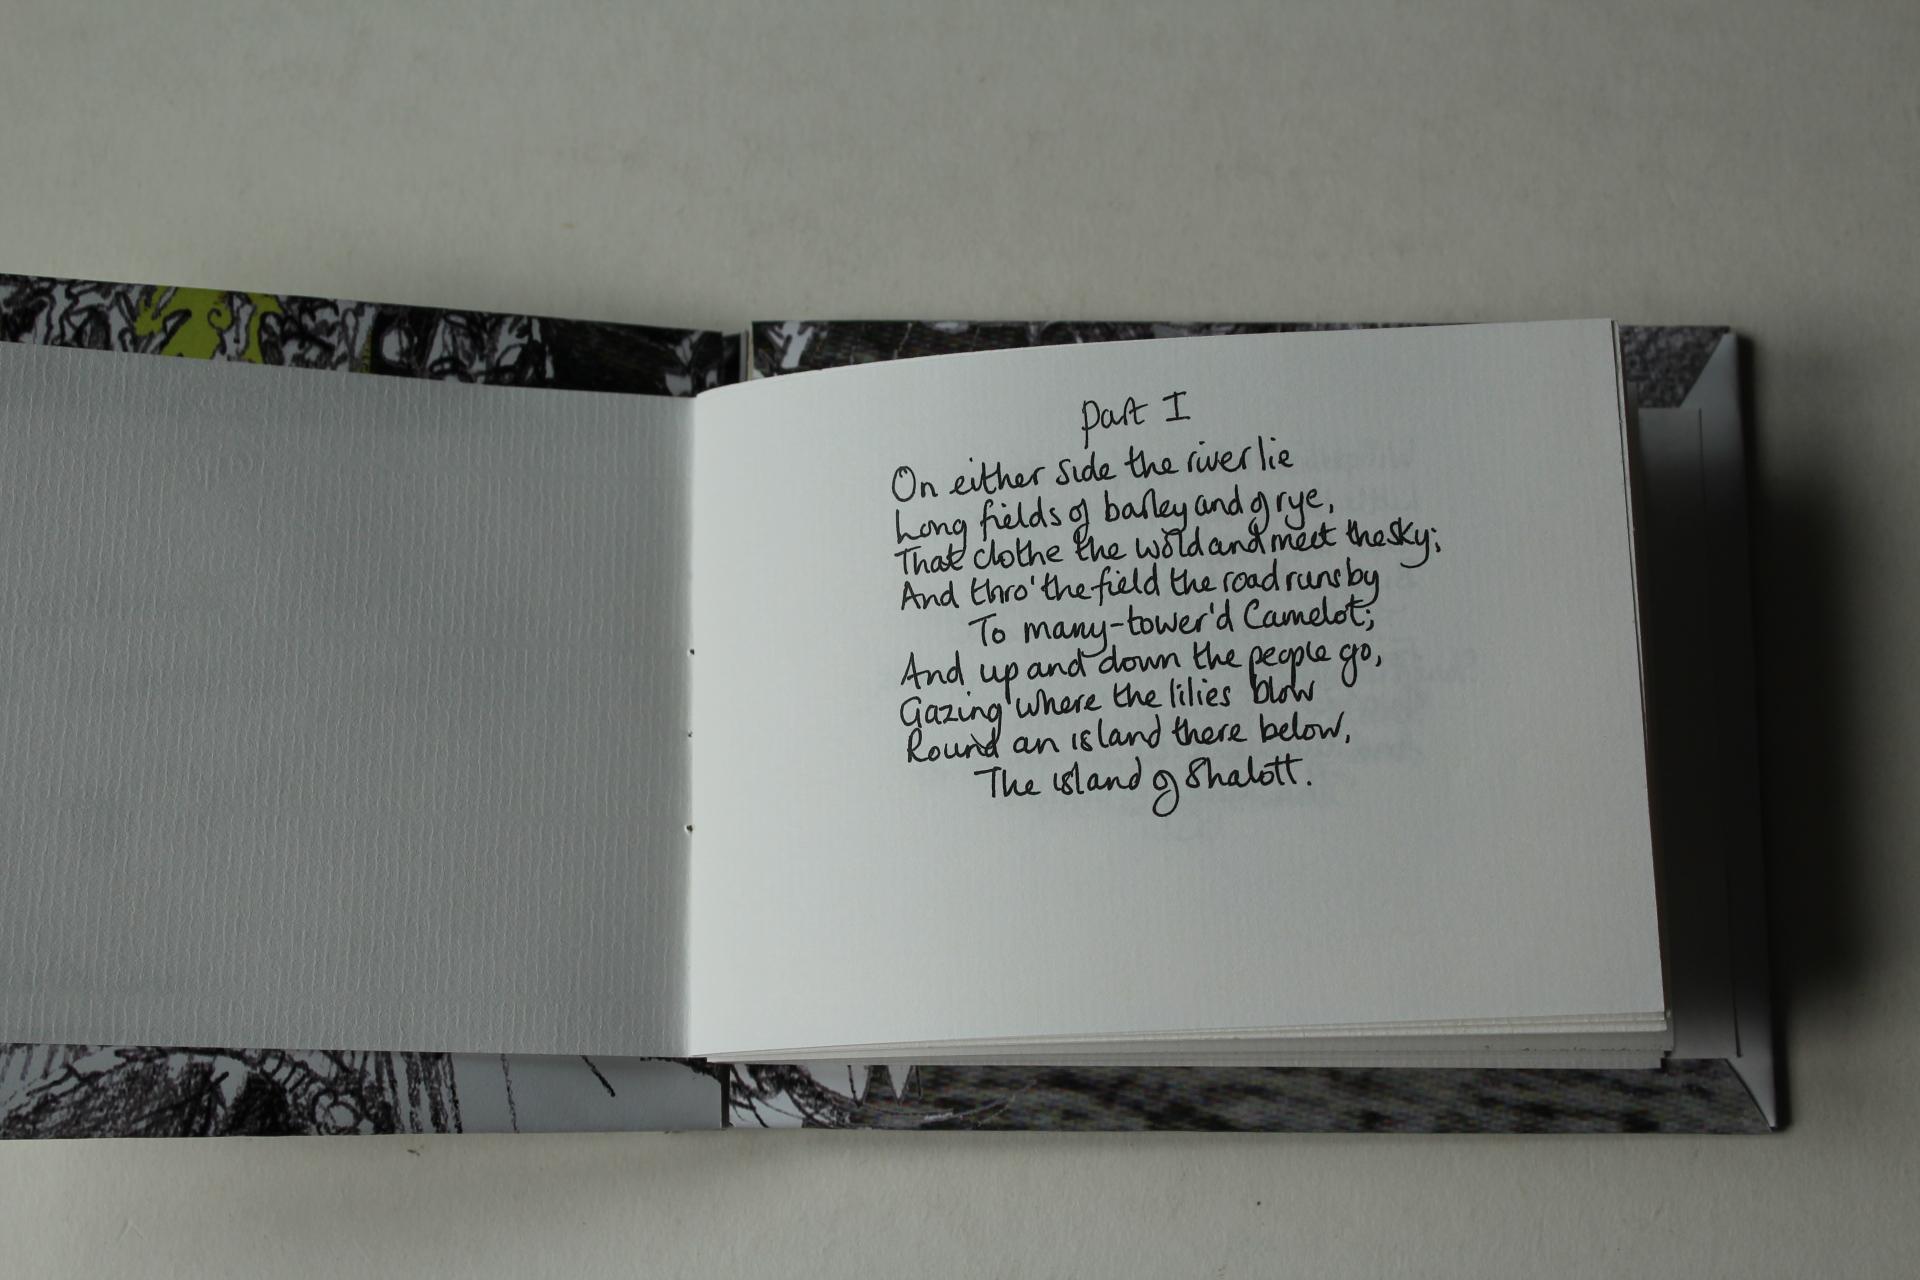 Part I
On either side the river lie
Long fields of barley and of rye,
That clothe the wold and meet the sky;
And thro' the field the road runs by
To many-tower'd Camelot;
And up and down the people go,
Gazing where the lilies blow
Round an island there below,
The island of Shalott.